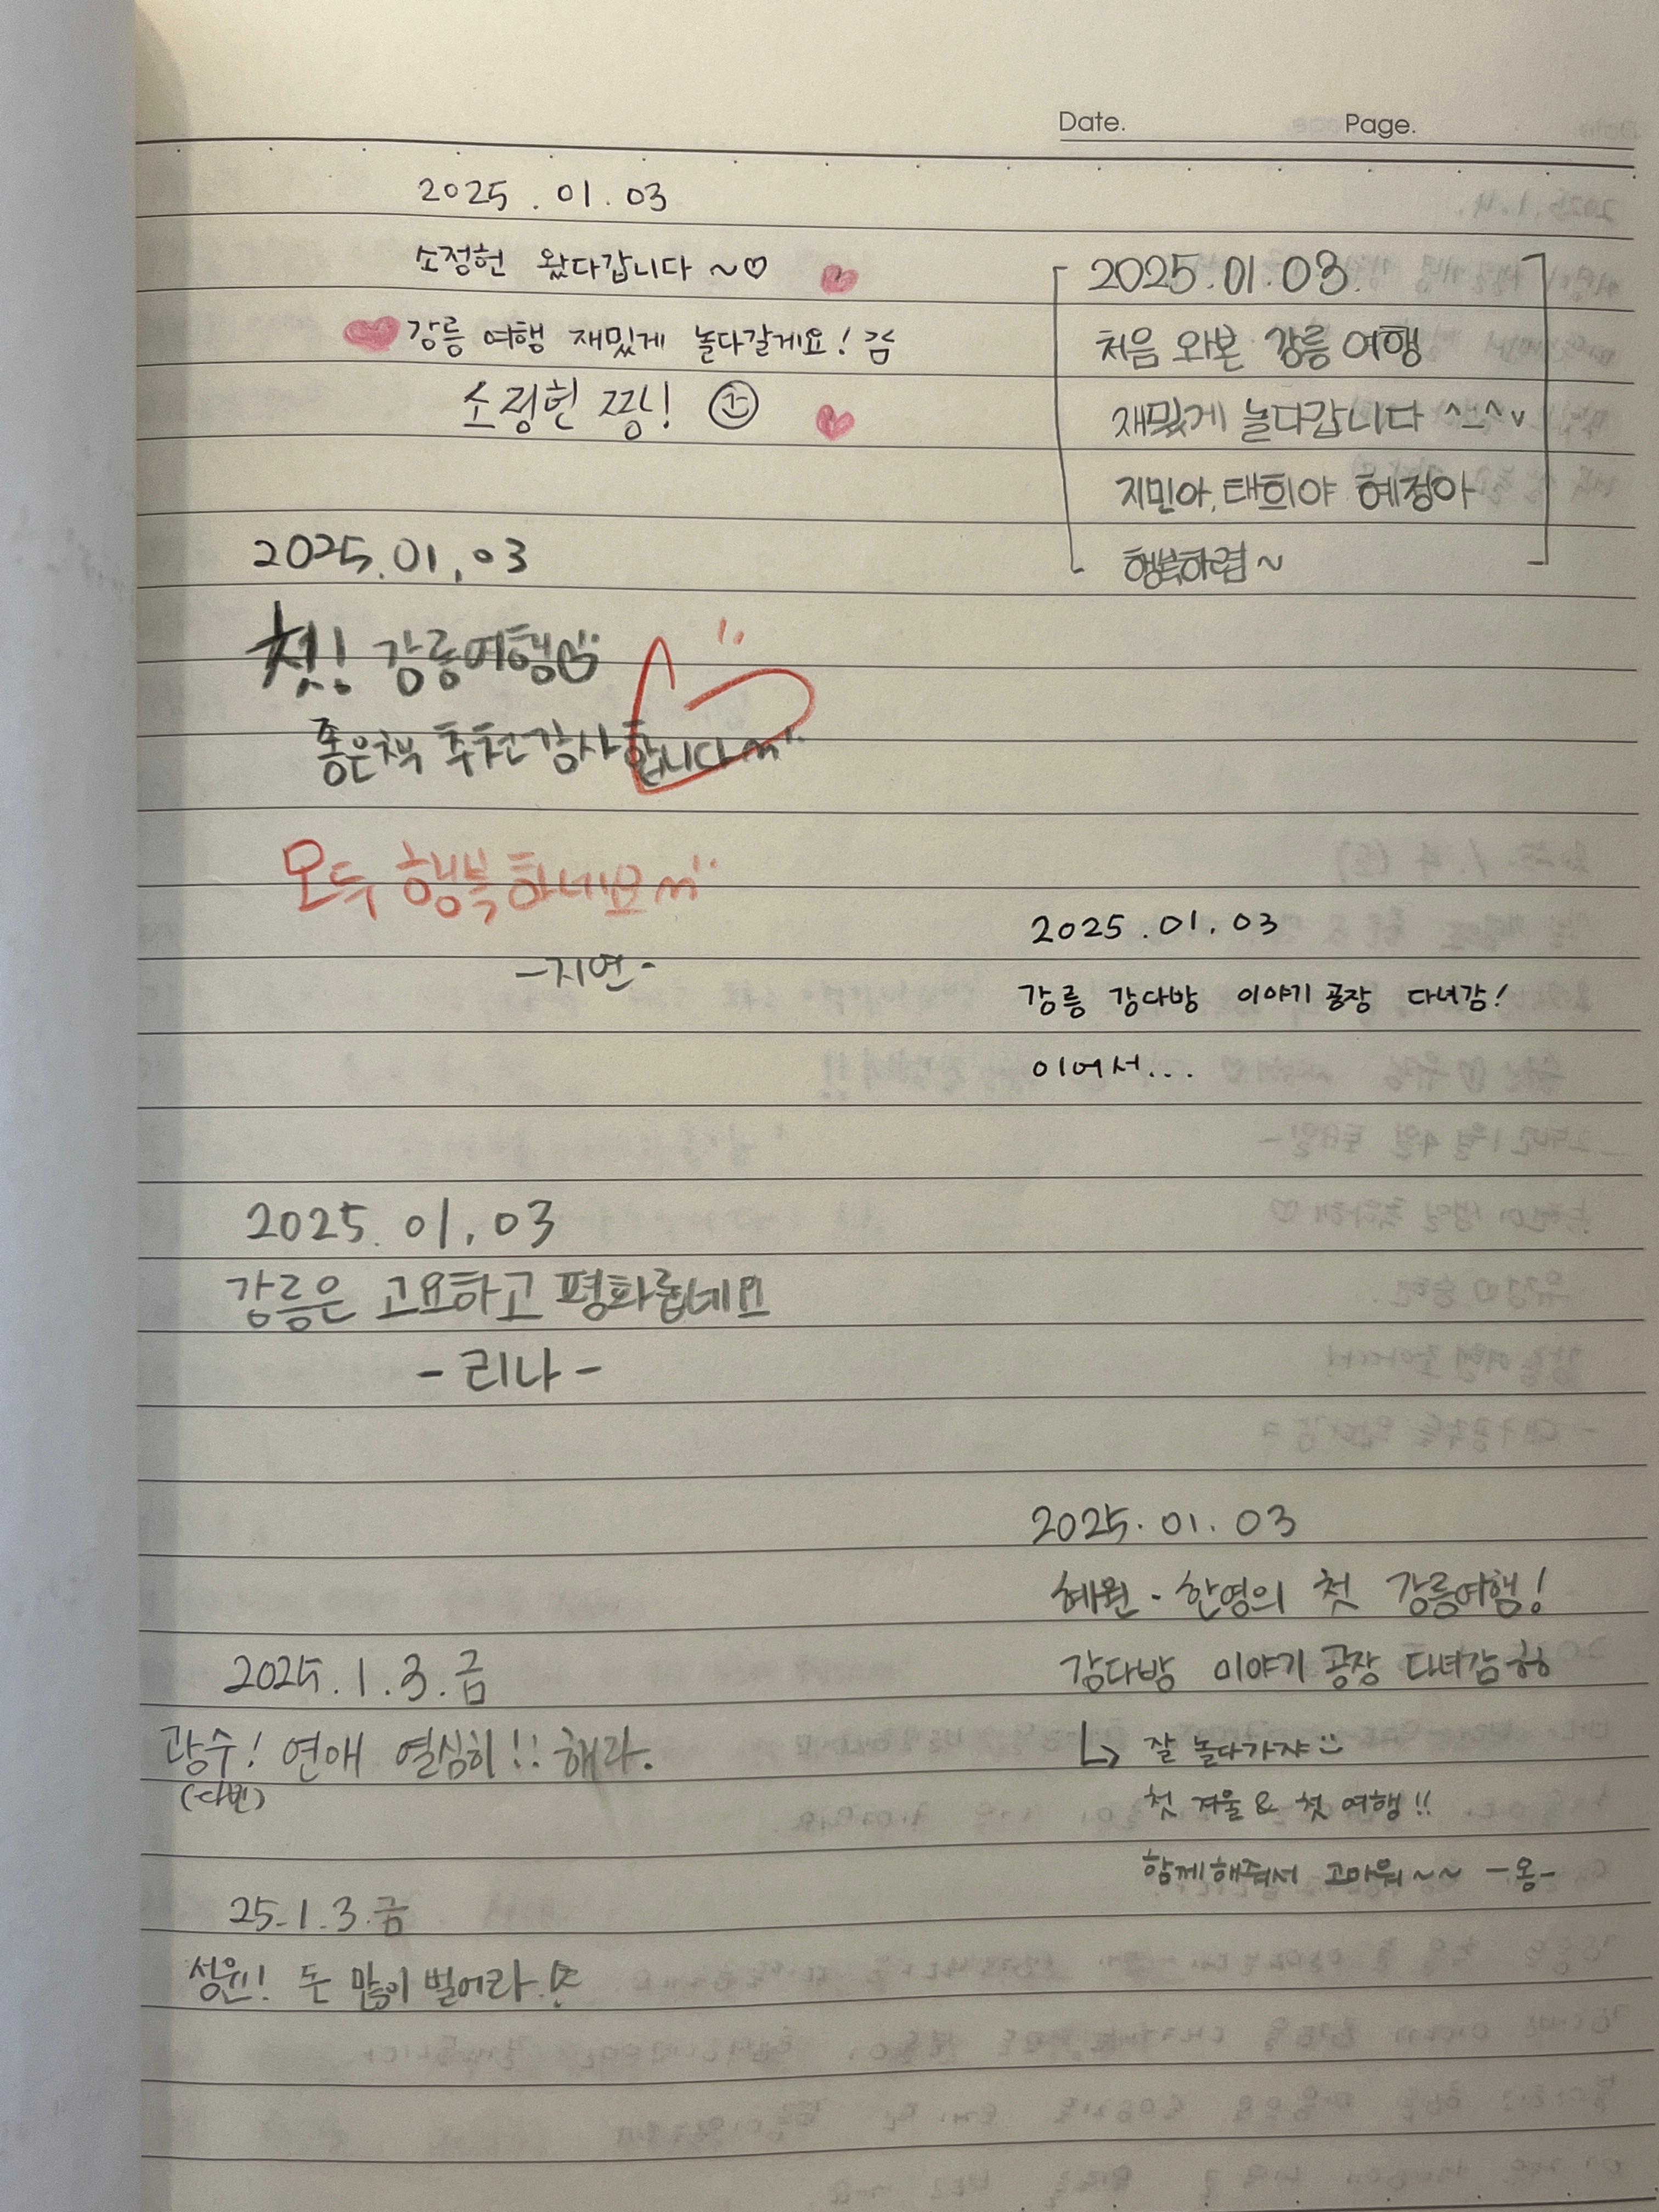 Date.
Page.
2025.01.03
소정헌 왔다갑니다 ~♡
강릉 여행 재밌게 놀다갈게요!
소정헌 짱!
2025.01.03.
처음 와본 강릉 여행
재밌게 놀다갑니다 ^_^v
지민아, 태희야 혜정아
행복하렴~
2025.01.03
첫! 강릉여행
좋은책 추천 감사합니다
모두 행복하네요
-지연-
2025.01.03
강릉 강다방 이야기 공장 다녀감!
이어서...
2025.01.03
강릉은 고요하고 평화롭네요
-리나-
2025.01.03
혜원·한영의 첫 강릉여행!
강다방 이야기 공장 다녀감ㅎㅎ
↳ 잘 놀다가쟈
첫 겨울 & 첫 여행!!
함께해줘서 고마워~~ -옹-
2025.1.3.금
광수! 연애 열심히!! 해라.
(다빈)
25.1.3.금
성윤! 돈 많이 벌어라!